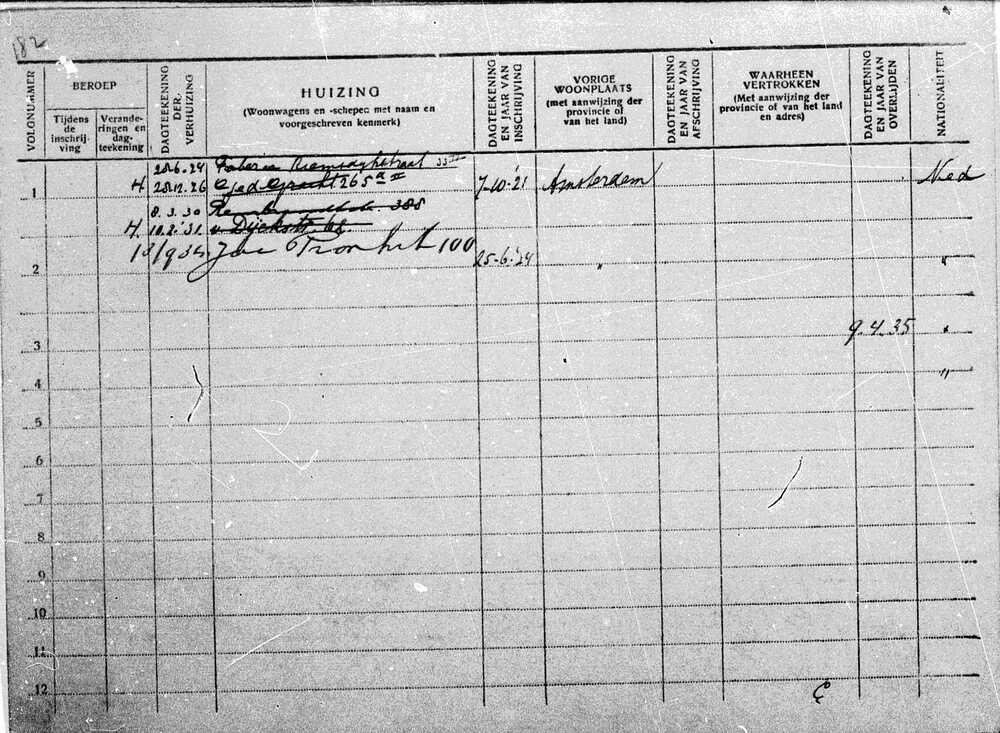 182
VOLGNUMMER
BEROEP
Tijdens de inschrijving
Veranderingen en dagteekening
DAGTEEKENING DER VERHUIZING
HUIZING
(Woonwagens en -schepen met naam en
voorgeschreven kenmerk)
DAGTEEKENING EN JAAR VAN INSCHRIJVING
VORIGE
WOONPLAATS
(met aanwijzing der
provincie of
van het land)
DAGTEEKENING EN JAAR VAN AFSCHRIJVING
WAARHEEN
VERTROKKEN
(Met aanwijzing der
provincie of van het land
en adres)
DAGTEEKENING EN JAAR VAN OVERLIJDEN
NATIONALITEIT
25.6.24 Riemsdijkstraat 33 II
1 H. 28.12.26 Ged Gracht 265 a II 7-10-'21 Amsterdam Ned
8.3.30 388
H. 10.2.'31. v Dijckstr. 68.
1934 Jac 100
2 25-6-'24 " "
3 9.4.35 "
4 "
5
6
7
8
9
10
11
12